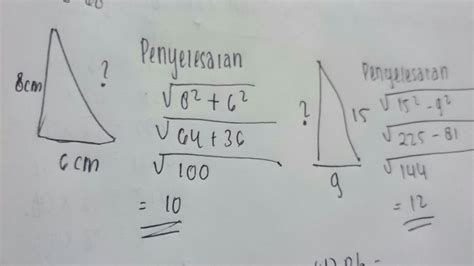 8cm
?
6cm
Penyelesaian
√8² + 6²
√64 + 36
√100
= 10
?
15
9
Penyelesaian
√15² - 9²
√225 - 81
√144
= 12